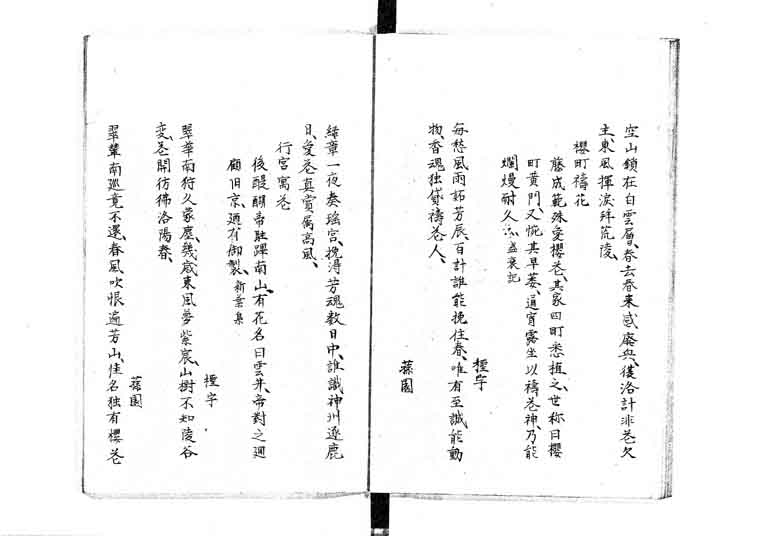 空山鎖在白雲層、春去春来感廃興、僅洛計非花久
主、東風揮涙拜荒陵、
櫻町禱花
藤成範殊愛櫻花、其家四町悉植之、世称曰櫻
町黄門、又慌其早萎、通宵露坐以禱花神、乃能
爛熳耐久云、盛衰記
樫宇
每愁風雨妬芳辰、百計誰能挽住春、唯有至誠能動
物、香魂独貸禱花人、
蓀園
緑章一夜奏瑤宮、挽得芳魂数日中、誰識神州逐鹿
日、愛花真賞属高風、
行宮寓花
後醍醐帝駐蹕南山、有花名曰雲井、帝對之廻
顧旧京、廼有御製、新葉集
樫宇
翠華南狩久蒙塵、幾歳東風夢紫宸、山樹不知陵谷
変、花開彷彿洛陽春、
蓀園
翠輦南巡竟不還、春風吹恨遍芳山、佳名独有櫻花